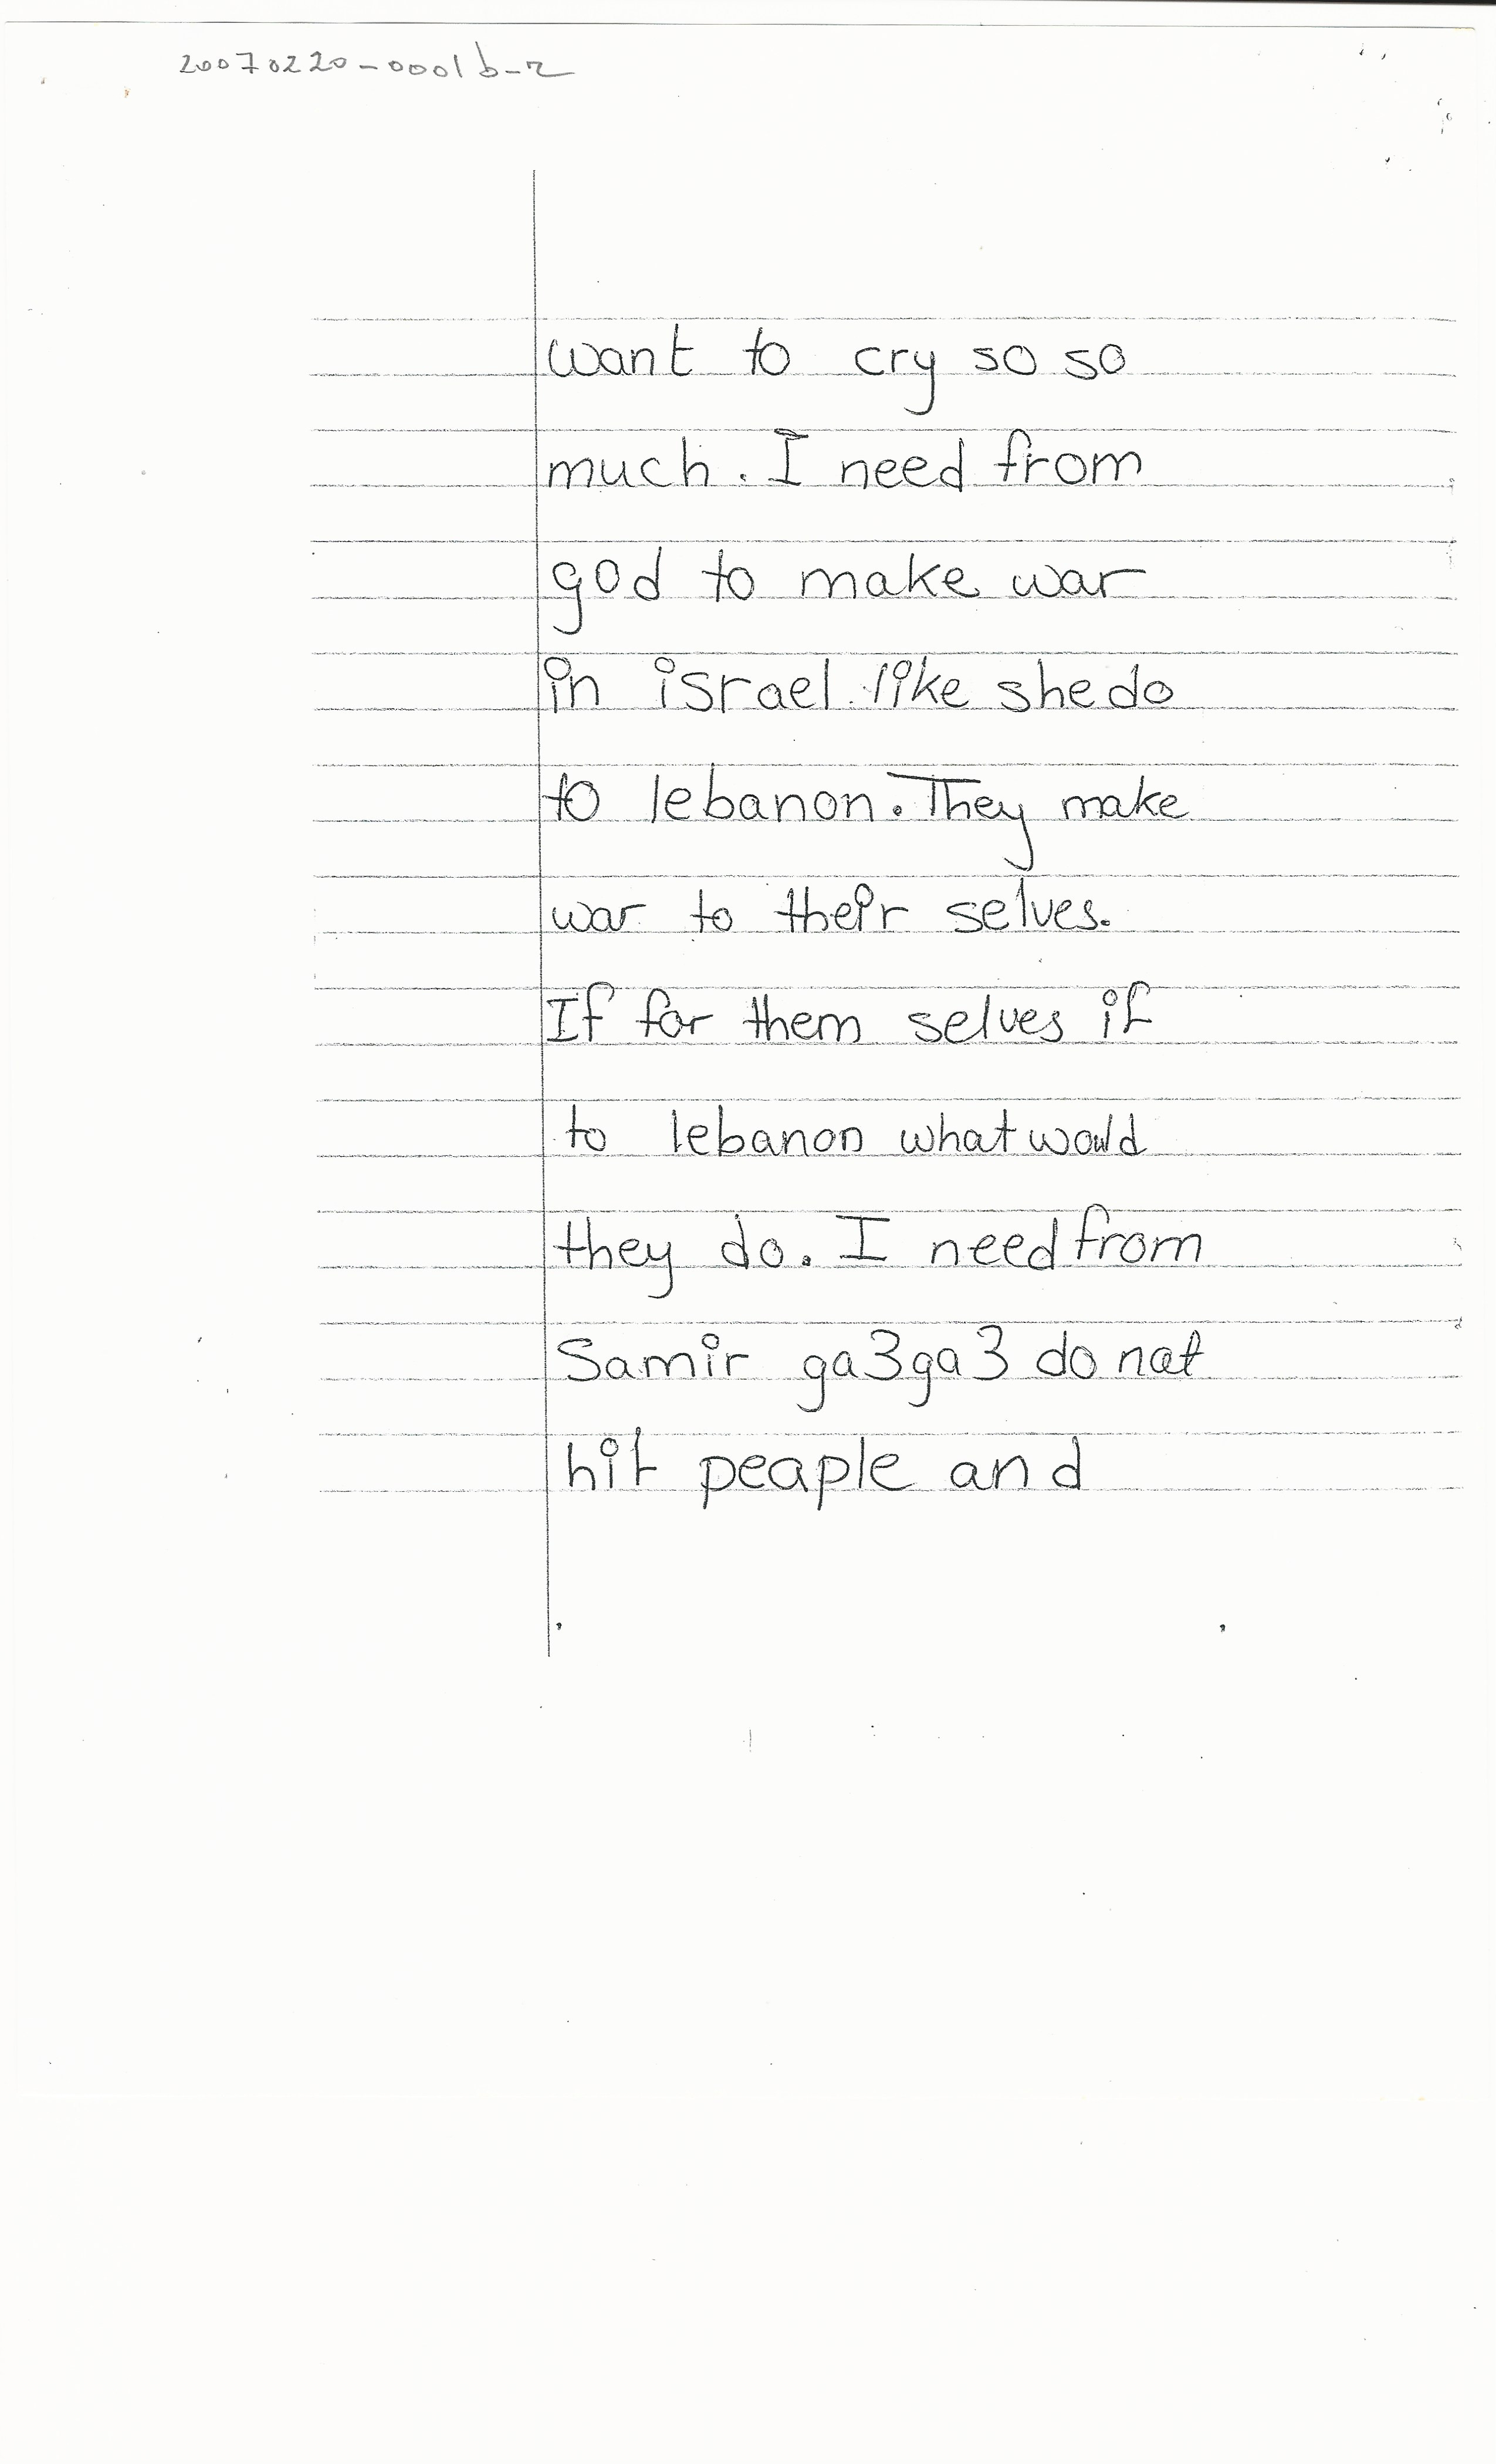 20070220-0001b-r
want to cry so so
much. I need from
god to make war
in israel like she do
to lebanon. They make
war to their selves.
If for them selves if
to lebanon what would
they do. I need from
Samir ga3ga3 do nat
hit peaple and